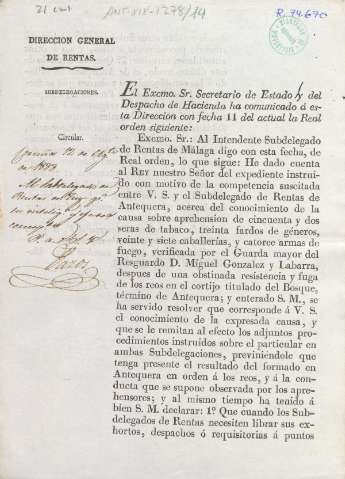 21 cm
ANT-XIX-1278/14
R. 74.670
DIRECCION GENERAL
DE RENTAS.
SUBDELEGACIONES.
Circular.
El Excmo. Sr. Secretario de Estado y del
Despacho de Hacienda ha comunicado á es-
ta Direccion con fecha 11 del actual la Real
orden siguiente:
Excmo. Sr.: Al Intendente Subdelegado
de Rentas de Málaga digo con esta fecha, de
Real orden, lo que sigue: He dado cuenta
al REY nuestro Señor del expediente instrui-
do con motivo de la competencia suscitada
entre V. S. y el Subdelegado de Rentas de
Antequera, acerca del conocimiento de la
causa sobre aprehension de cincuenta y dos
seras de tabaco, treinta fardos de géneros,
veinte y siete caballerías, y catorce armas de
fuego, verificada por el Guarda mayor del
Resguardo D. Miguel Gonzalez y Labarra,
despues de una obstinada resistencia y fuga
de los reos en el cortijo titulado del Bosque,
término de Antequera; y enterado S. M., se
ha servido resolver que corresponde á V. S.
el conocimiento de la expresada causa, y
que se le remitan al efecto los adjuntos pro-
cedimientos instruidos sobre el particular en
ambas Subdelegaciones, previniéndole que
tenga presente el resultado del formado en
Antequera en órden á los reos, y á la con-
ducta que se supone observada por los apre-
hensores; y al mismo tiempo ha tenido á
bien S. M. declarar: 1.º Que cuando los Sub-
delegados de Rentas necesiten librar sus ex-
hortos, despachos ó requisitorias á puntos